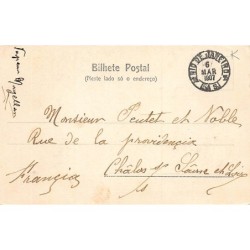 Bilhete Postal
(Neste lado só o endereço)
RIO DE JANEIRO
6
MAR
1907
Monsieur Poutet et Noble
Rue de la providencia
Châlos s/ Saône et Loire
Francia